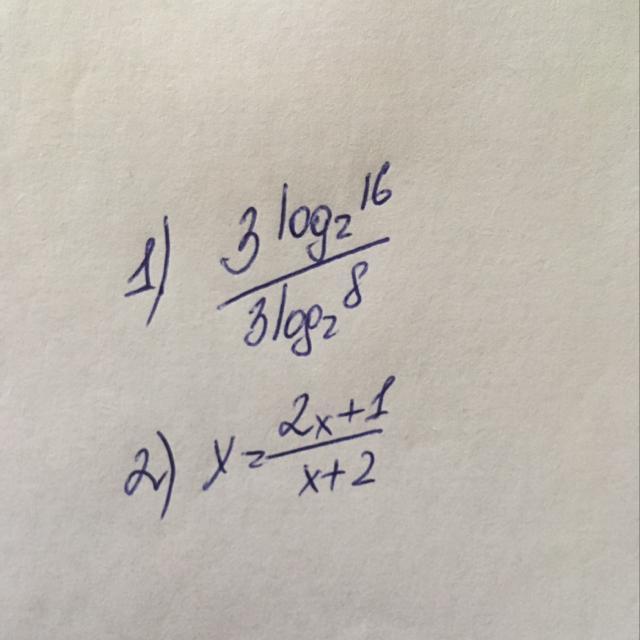 1) 3 log₂ 16
3 log₂ 8
2) x = 2x+1
x+2